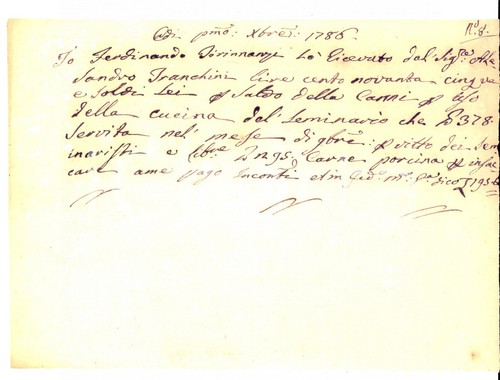 Adi. pmo: Xbre: 1786 No. 6.
Io Ferdinando Tirinnanzi hò ricevuto dal Sigre: Ale
sandro Franchini lire cento novanta cinque
e Soldi Sei p Saldo della Carni p uso
della cucina del Seminario che 378.
servita nel' mese di 9bre: p vitto dei Sem
inaristi e libre 295: Carne porcina p insa
care ame pago Inconti et in dico 195.6